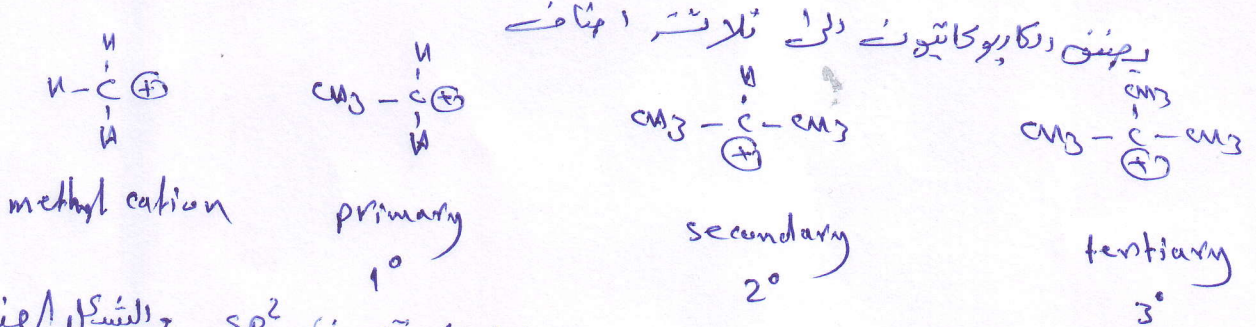 يصنف الكاربوكاتيون الى ثلاثة اصناف
H H H CH3
H-C⊕ CH3-C⊕ CH3-C-CH3 CH3-C-CH3
H H ⊕ ⊕
methyl cation primary secondary tertiary
1° 2° 3°
sp² والشكل